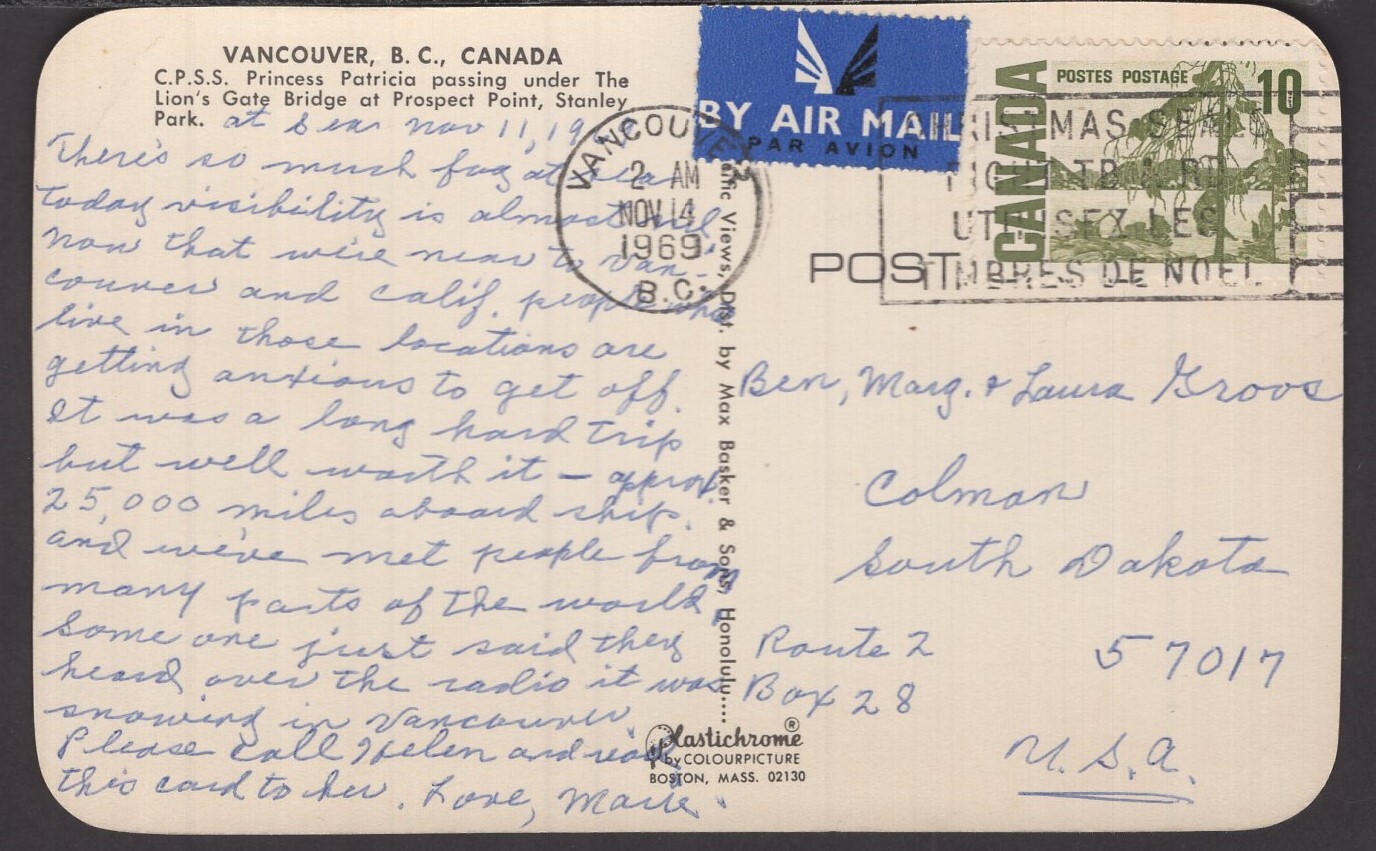 VANCOUVER, B. C., CANADA
C.P.S.S. Princess Patricia passing under The
Lion's Gate Bridge at Prospect Point, Stanley
Park.
at Sea Nov 11, 19
There's so much fog at sea
today visibility is almost nil
now that we're near to Van-
couver and Calif. people who
live in those locations are
getting anxious to get off.
It was a long hard trip
but well worth it – approx.
25,000 miles aboard ship.
and we've met people from
many parts of the world,
Some one just said they
heard over the radio it was
snowing in Vancouver.
Please call Helen and read
this card to her. Love, Marie.
BY AIR MAIL
PAR AVION
VANCOUVER
2 AM
NOV 14
1969
B.C.
CHRISTMAS SEALS
FIGHT TB & RD
UTILISEZ LES
TIMBRES DE NOEL
CANADA
POSTES POSTAGE
10
POST
Views, Dist. by Max Basker & Sons, Honolulu....
Ben, Marg. & Laura Groos
Colman
South Dakota
Route 2
57017
Box 28
U.S.A.
Plastichrome®
by COLOURPICTURE
BOSTON, MASS. 02130